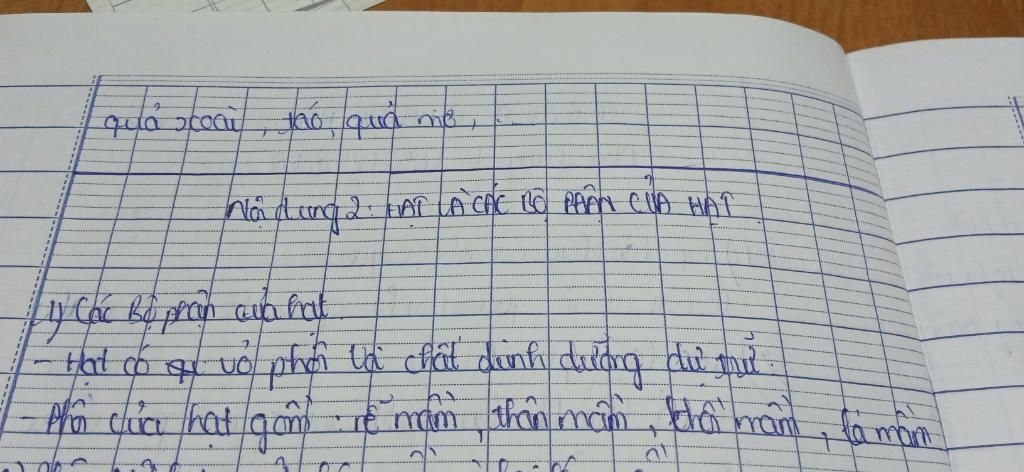 quả xoài, táo, quả mơ,
Nội dung 2: HẠT LÀ CÁC BỘ PHẬN CỦA HẠT
1) Các Bộ phận của hạt
- Hạt có vỏ phôi và chất dinh dưỡng dự trữ.
- Phôi của hạt gồm: rễ mầm, thân mầm, chồi mầm, lá mầm